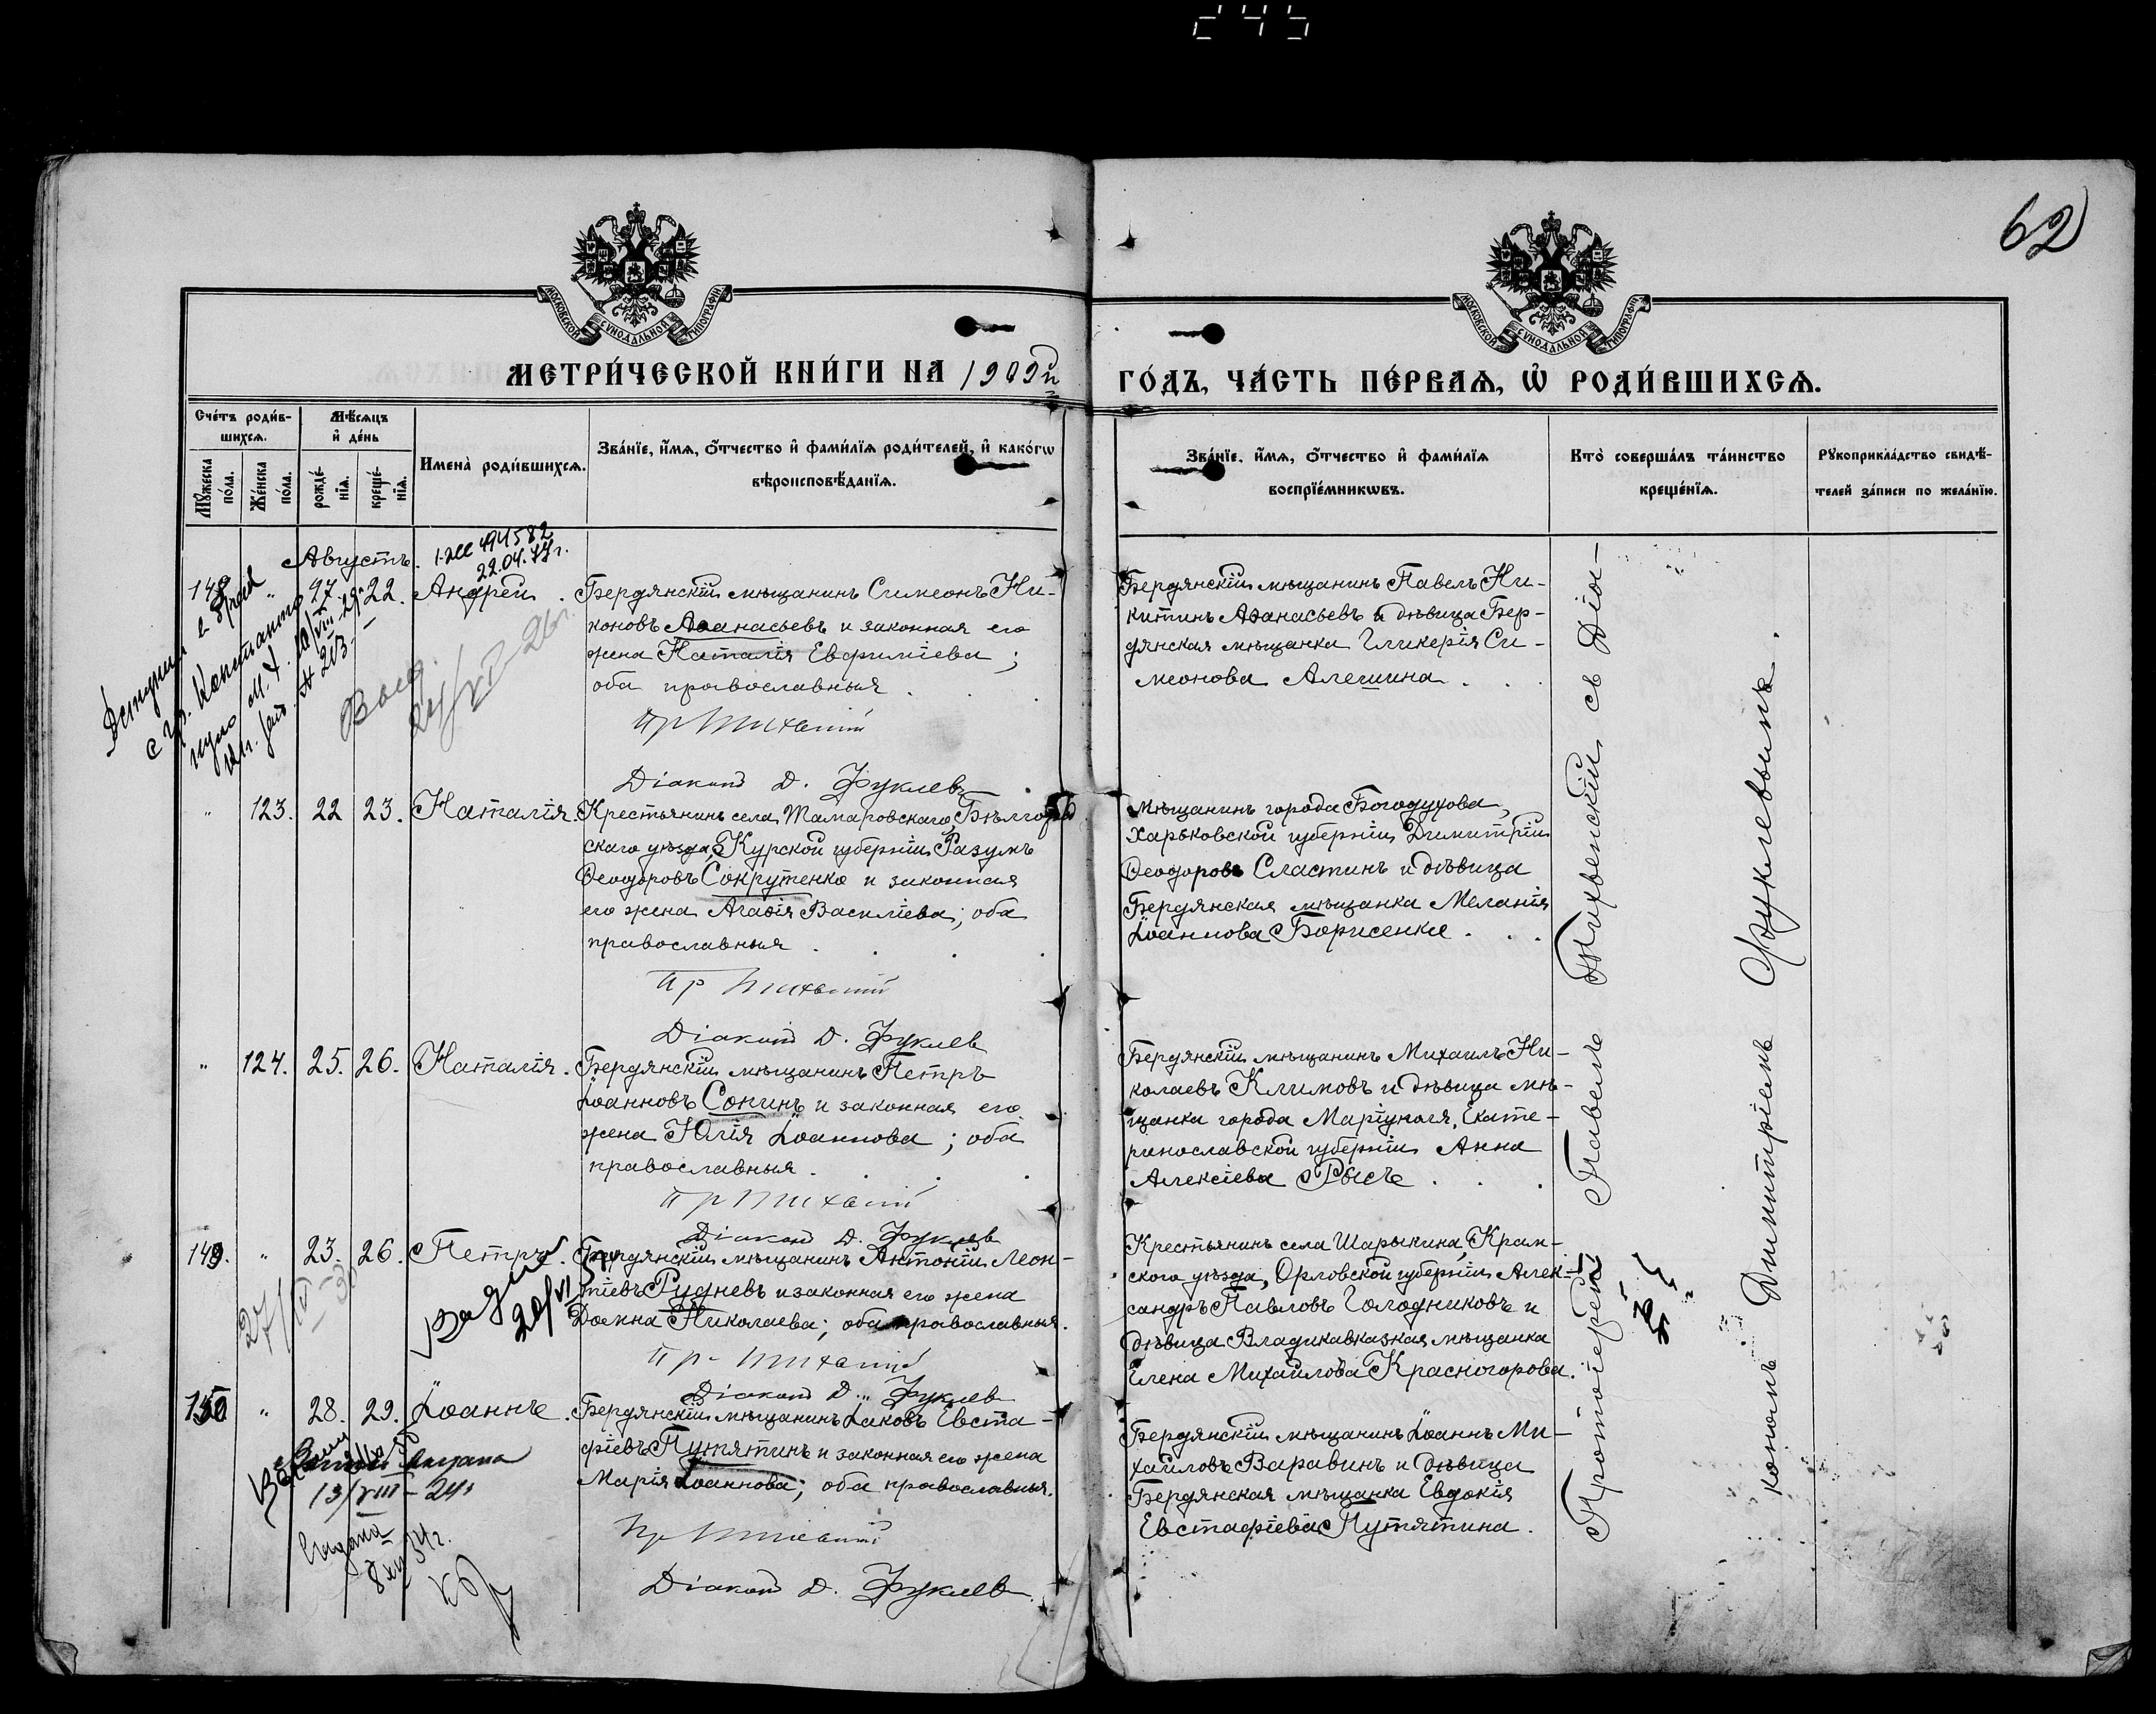 245
62
МОСКОВСКОЙ СѴНОДАЛЬНОЙ ТИПОГРАФІИ
МОСКОВСКОЙ СѴНОДАЛЬНОЙ ТИПОГРАФІИ
МЕТРИ́ЧЕСКОЙ КНИ́ГИ НА 1909й ГО́ДЪ, ЧА́СТЬ ПЕ́РВАѦ, Ѡ҆ РОДИ́ВШИХСѦ.
Сче́тъ роди́в-
шихсѧ.
Мꙋ́жеска
по́ла.
Же́нска
по́ла.
Мѣ́сѧцъ
и҆ де́нь
рожде́-
нїѧ.
креще́-
нїѧ.
Имена̀ роди́вшихсѧ.
Зва́нїе, и҆́мѧ, ѻ҆́тчество и҆ фами́лїѧ роди́телей, и҆ како́гѡ
вѣроисповѣ́данїѧ.
Зва́нїе, и҆́мѧ, ѻ҆́тчество и҆ фами́лїѧ
воспрїе́мникѡвъ.
Кто̀ соверша́лъ та́инство
креще́нїѧ.
Рꙋкоприкла́дство свидѣ́-
телей за́писи по жела́нїю.
Августъ.
494582
22.04.77г.
148 " 17. 22. Андрей.
Бердянскій мѣщанинъ Симеонъ Ни-
коновъ Аѳанасьевъ и законная его
жена Наталія Евфиміева;
оба православныя.
Пр Тихвинскій
Діаконъ Д. Фуклевъ
Бердянскій мѣщанинъ Павелъ Ни-
китинъ Аѳанасьевъ и дѣвица Бер-
дянская мѣщанка Гликерія Си-
меонова Алешина.
" 123. 22 23. Наталія.
Крестьянинъ села Тамаровскаго, Бѣлгород
скаго уѣзда, Курской губерніи Разумъ
Ѳеодоровъ Сокрутенко и законная
его жена Агаѳія Василіева; оба
православныя.
Пр Тихвинскій
Діаконъ Д. Фуклев
Мѣщанинъ города Богодухова,
Харьковской губерніи Димитрій
Ѳеодоровъ Сластинъ и дѣвица
Бердянская мѣщанка Меланія
Іоаннова Борисенко.
" 124. 25. 26. Наталія.
Бердянскій мѣщанинъ Петръ
Іоанновъ Сонинъ и законная его
жена Юлія Іоаннова; оба
православныя.
Пр Тихвинскій
Діаконъ Д. Фуклев
Бердянскій мѣщанинъ Михаилъ Ни-
колаевъ Климовъ и дѣвица мѣ-
щанка города Маріуполя, Екате-
ринославской губерніи Анна
Алексіева Рысь.
149. " 23. 26. Петръ.
Бердянскій мѣщанинъ Антоній Леон-
тіевъ Рудневъ и законная его жена
Домна Николаева; оба православныя.
Пр. Тихвинскій
Діаконъ Д. Фуклев
Крестьянинъ села Шарыкина, Кром-
ского уѣзда, Орловской губерніи Алек-
сандръ Павловъ Голодниковъ и
дѣвица Владикавказкая мѣщанка
Елена Михайлова Красногорова.
150 " 28. 29. Іоаннъ.
Бердянскій мѣщанинъ Іаковъ Евста-
фіевъ Путятинъ и законная его жена
Марія Іоаннова; оба православныя.
13/VIII-24г
Пр Тихвинскій
Діаконъ Д. Фуклев
Бердянскій мѣщанинъ Іоаннъ Ми-
хайловъ Варавинъ и дѣвица
Бердянская мѣщанка Евдокія
Евстафіева Путятина.
Протоіерей Павелъ Тихвенскій съ Діа-
кономъ Димитріемъ Фуклевымъ.